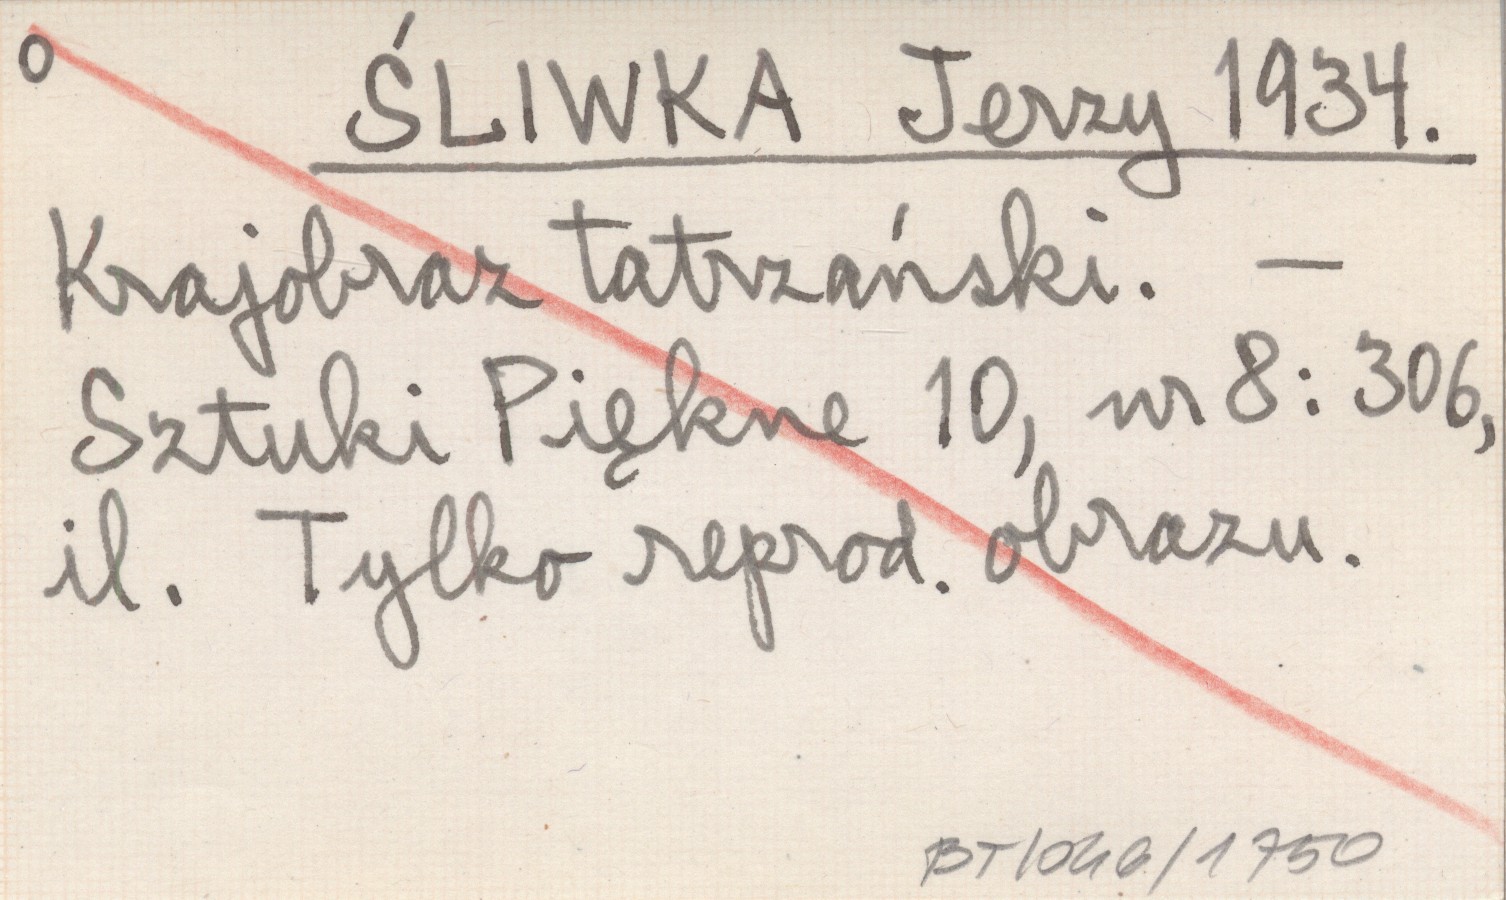 o ŚLIWKA Jerzy 1934.
Krajobraz tatrzański. —
Sztuki Piękne 10, nr 8: 306,
il. Tylko reprod. obrazu.
BT/046/1750